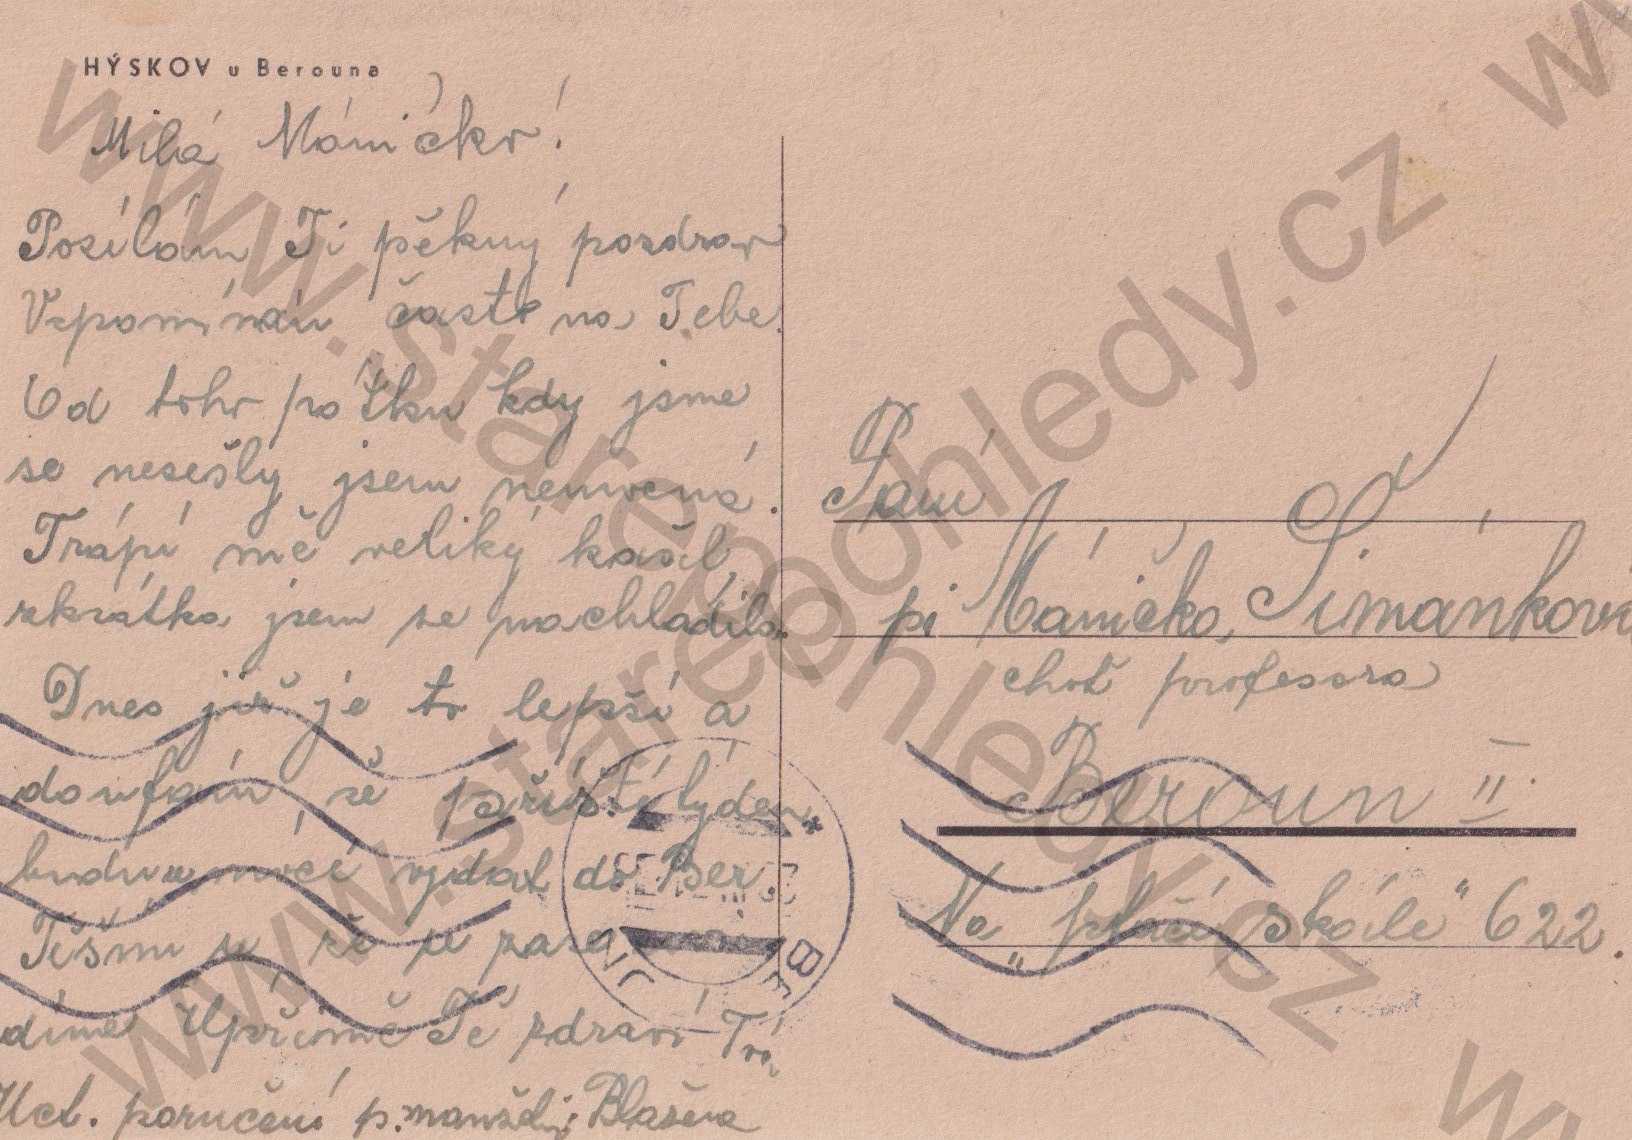 HÝSKOV u Berouna
Milá Máničko!
Posílám Ti pěkný pozdrav
Vzpomínám často na Tebe.
Od toho pátku kdy jsme
se nesešly jsem nemocná.
Trápí mě veliký kašel,
zkrátka jsem se nachladila.
Dnes již je to lepší a
doufám, že příští týden
budu moci vydat do Ber.
Těším se že se zase
díme Upřímně Tě zdraví Tvá
Uct. poručení p. manželi Blažena
Paní
pí Mánička Šimánková
choť professora
Beroun II.
Na „ptačí skále“ 622.
BEROUN
www.starepohledy.cz
www.starepohledy.cz